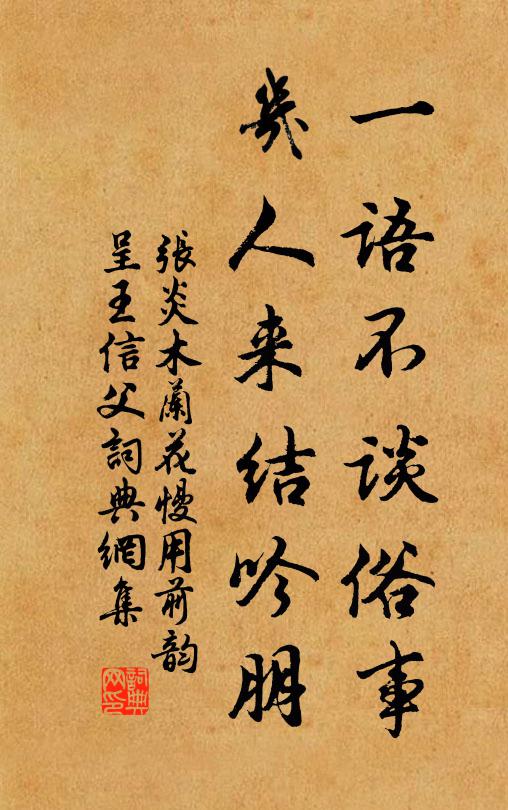 一语不谈俗事
幾人来结吟朋
張炎木蘭花慢用前韵
呈王信父詞典網集
詞典网印